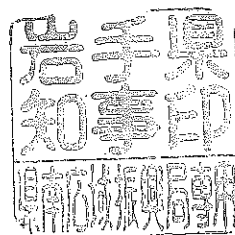 岩手県
知事印
県南広域振興局